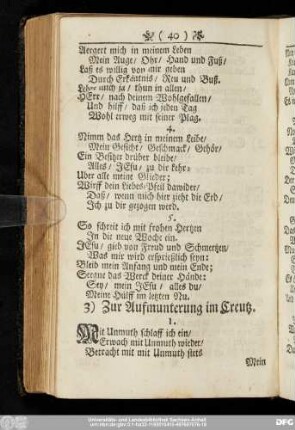 ( 40 )
Aergert mich in meinem Leben
Mein Auge/ Ohr/ Hand und Fuß/
Laß es willig von mir geben
Durch Erkäntnis/ Reu und Buß.
Lehre mich ja/ thun in allen/
HErr/ nach deinem Wohlgefallen/
Und hilff/ daß ich jeden Tag
Wohl erweg mit seiner Plag.
4.
Nimm das Hertz in meinem Leibe/
Mein Gesicht/ Geschmack/ Gehör/
Ein Besitzer drüber bleibe/
Alles/ JEsu/ zu dir kehr.
Uber alle meine Glieder;
Wirff dein Liebes-Pfeil dawider/
Daß/ wenn mich hier zieht die Erd/
Ich zu dir gezogen werd.
5.
So schreit ich mit frohen Hertzen
In die neue Woche ein.
JEsu/ gieb von Freud und Schmertzen/
Was mir wird ersprießlich seyn:
Bleib mein Anfang und mein Ende;
Segne das Werck deiner Hände:
Sey/ mein JEsu/ alles du/
Meine Hülff im letzten Nu.
3) Zur Aufmunterung im Creutz.
1.
Mit Unmuth schlaff ich ein/
Erwach mit Unmuth wieder/
Betracht mit mit Unmuth stets
Mein